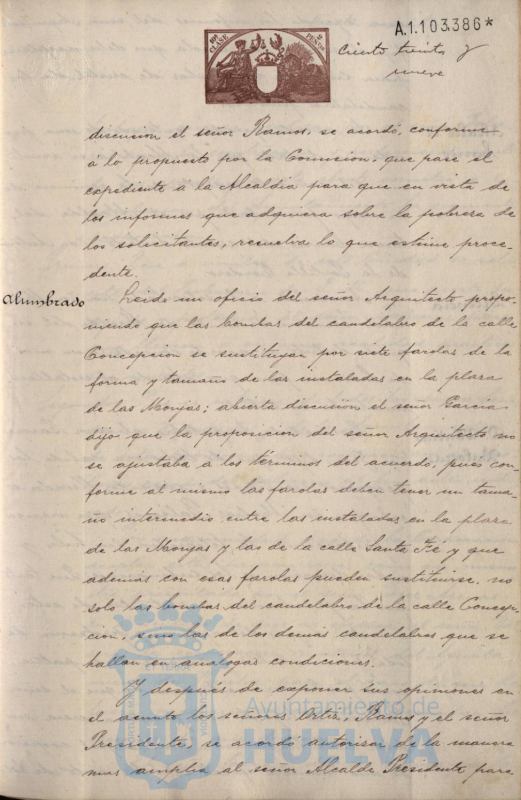 A.1.103.386*
10ª CLASE
2 PESETAS
Ciento treinta y
nueve
discusion el señor Ramos, se acordó, conforme
á lo propuesto por la Comision, que pase el
expediente á la Alcaldia para que en vista de
los informes que adquiera sobre la pobreza de
los solicitantes, resuelva lo que estime proce-
dente.
Alumbrado
Leido un oficio del señor Arquitecto propo-
niendo que las bombas del candelabro de la calle
Concepcion se sustituyan por siete farolas de la
forma y tamaño de las instaladas en la plaza
de las Monjas; abierta discusion el señor Garcia
dijo que la proposicion del señor Arquitecto no
se ajustaba á los términos del acuerdo, pues con-
forme al mismo las farolas deben tener un tama-
ño intermedio entre las instaladas en la plaza
de las Monjas y las de la calle Santa Fé y que
además con esas farolas pueden sustituirse, no
solo las bombas del candelabro de la calle Concep-
cion, sino las de los demás candelabros que se
hallan en análogas condiciones.
Y después de exponer sus opiniones en
el asunto los señores Ortiz, Ramos y el señor
Presidente, se acordó autorizar de la manera
mas amplia al señor Alcalde Presidente para
Ayuntamiento de
HUELVA